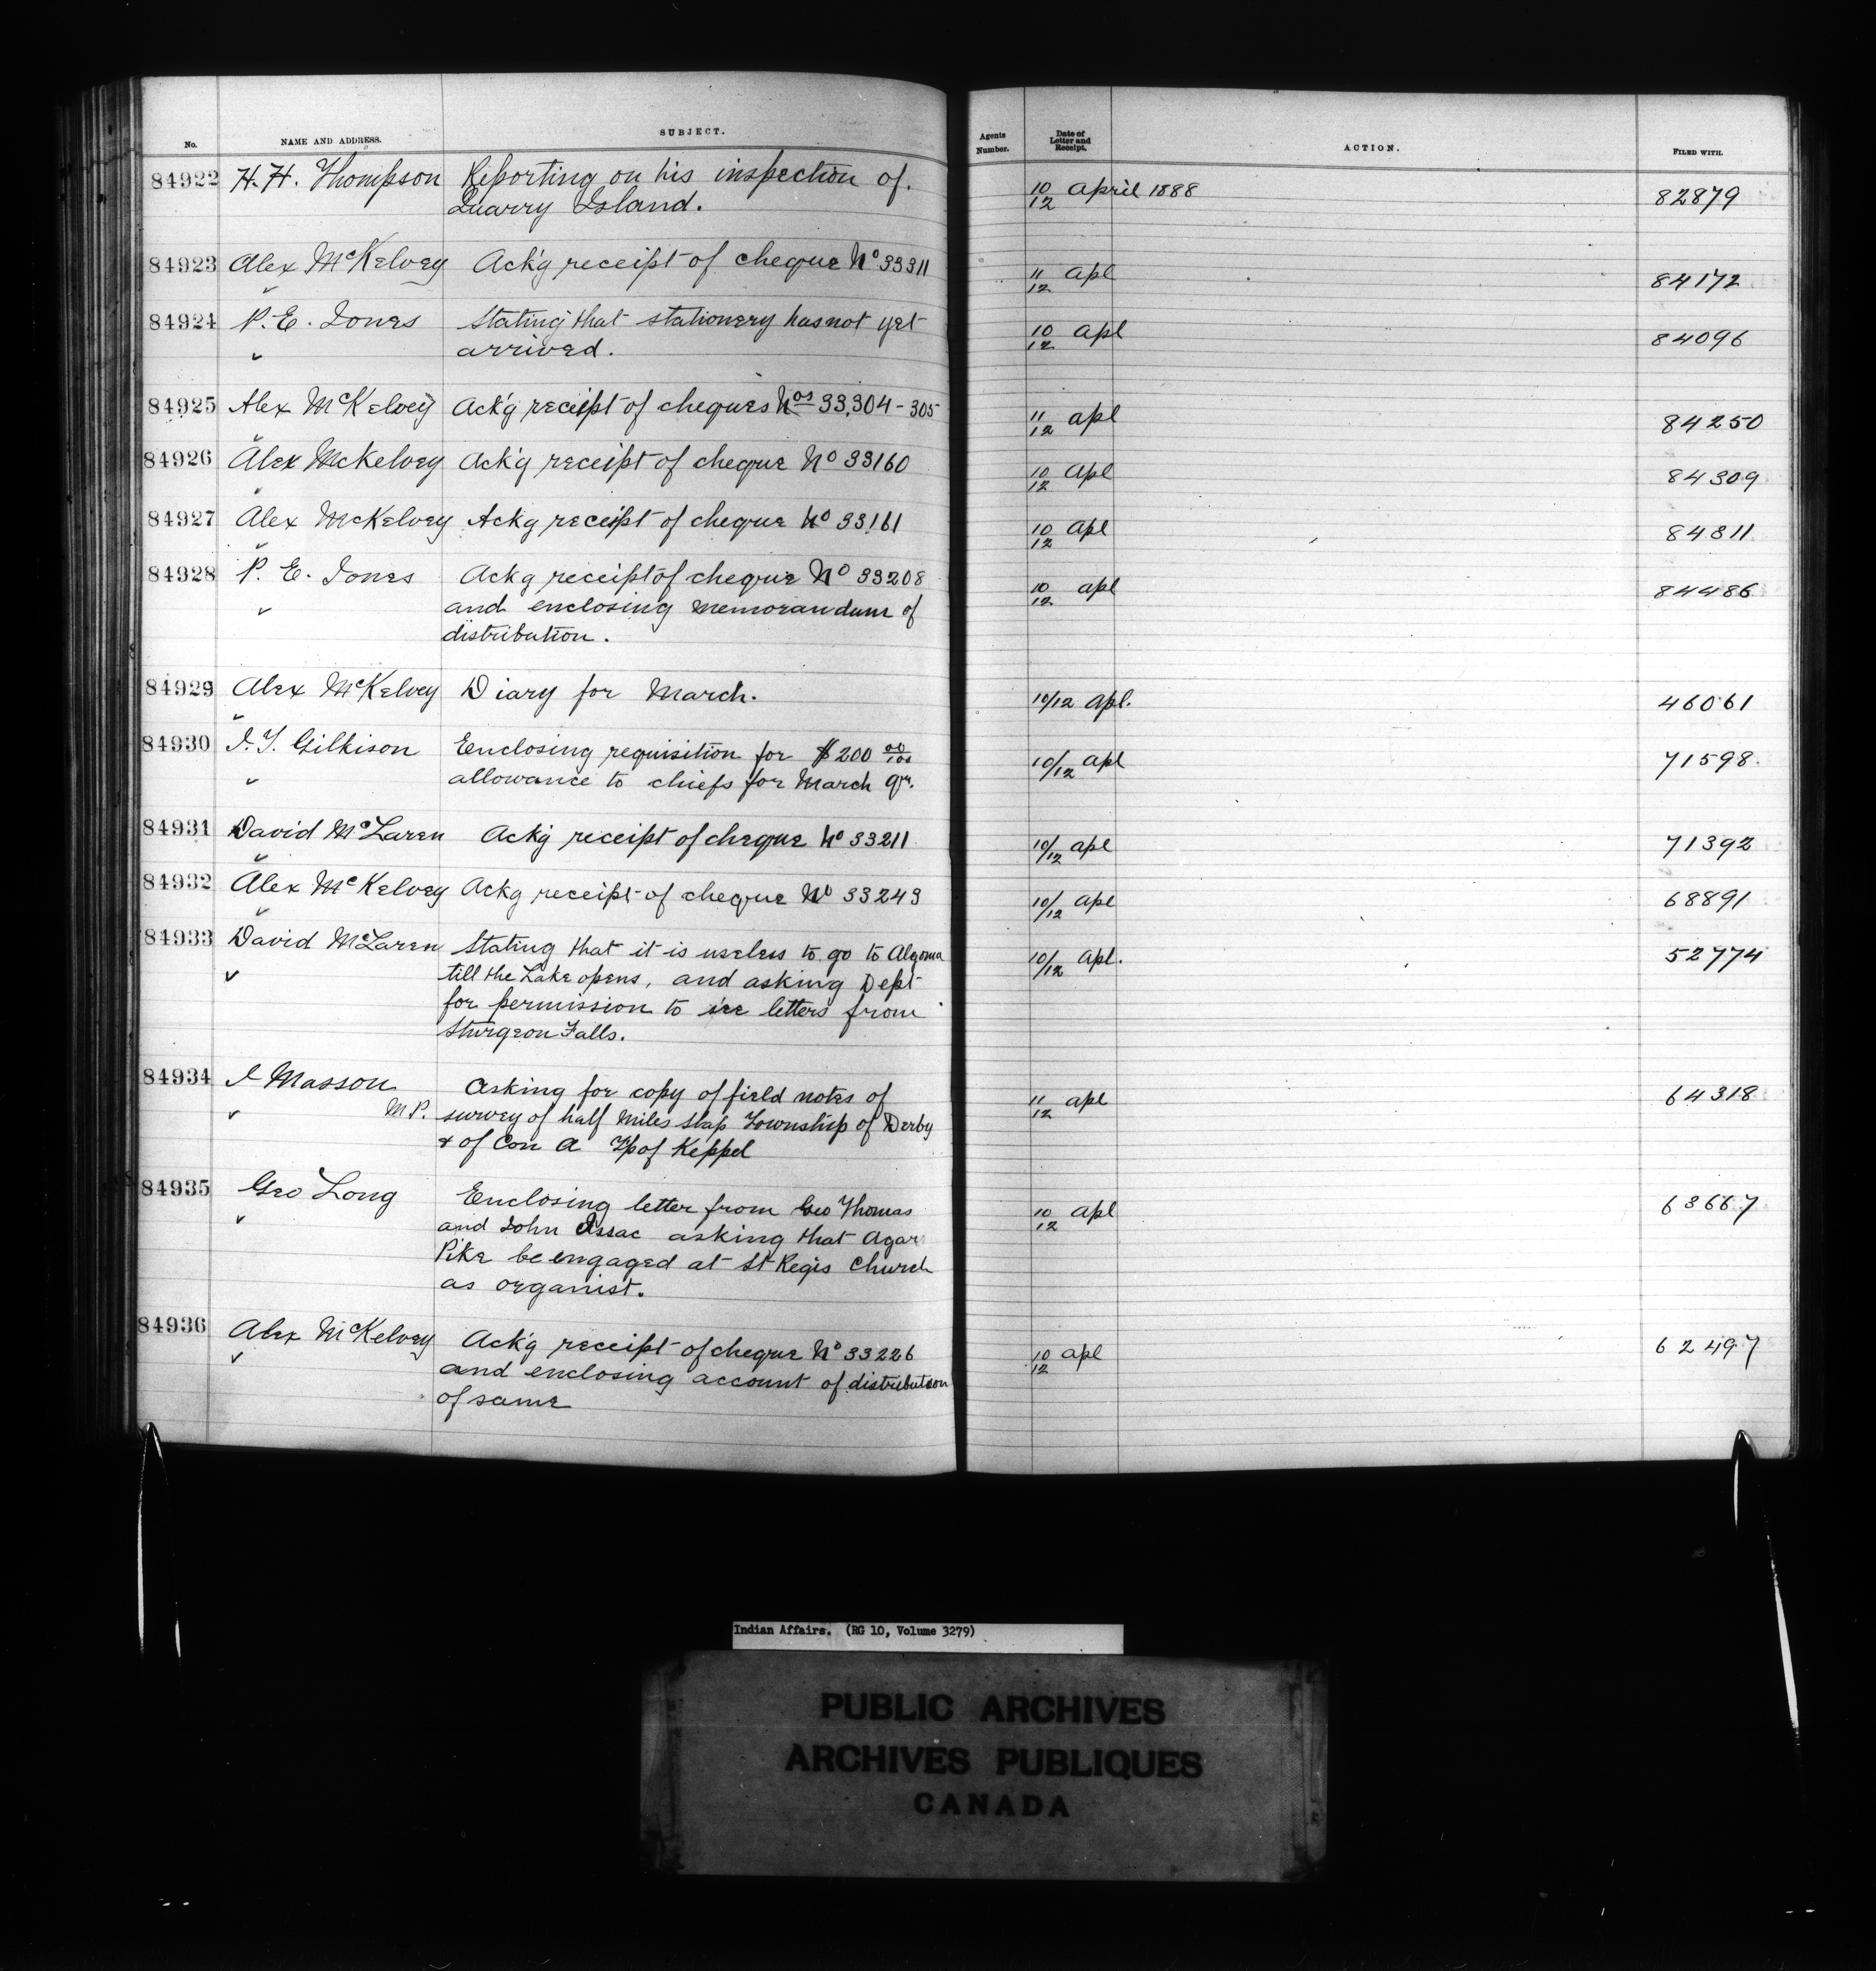 No. NAME AND ADDRESS. SUBJECT. Agents Number. Date of Letter and Receipt. ACTION. FILED WITH.
84922 H.H. Thompson Reporting on his inspection of 10/12 April 1888 82879
Quarry Island.
84923 Alex McKelvey Ack'g receipt of cheque No 33311 11/12 Apl 84172
84924 P.E. Jones Stating that stationery has not yet 10/12 Apl 84096
arrived.
84925 Alex McKelvey Ack'g receipt of cheques Nos 33,304-305 11/12 apl 84250
84926 Alex McKelvey Ack'g receipt of cheque No 33160 10/12 Apl 84309
84927 Alex McKelvey Ackg receipt of cheque No 33161 10/12 Apl 84311
84928 P. E. Jones Ackg receipt of cheque No 33208 10/12 apl 84486
and enclosing memorandum of
distribution.
84929 Alex McKelvey Diary for March. 10/12 Apl. 46061
84930 J.T. Gilkison Enclosing requisition for $200 00/100 10/12 apl 71598.
allowance to chiefs for March qr.
84931 David McLaren Ack'g receipt of cheque No 33211 10/12 apl 71392
84932 Alex McKelvey Ackg receipt of cheque No 33243 10/12 apl 68891
84933 David McLaren Stating that it is useless to go to Algoma 10/12 Apl. 52774
till the Lake opens, and asking Dept
for permission to see letters from
Sturgeon Falls.
84934 J Masson Asking for copy of field notes of 11/12 apl 64318
M.P. survey of half miles stap Township of Derby
& of Con A Tp of Keppel
84935 Geo Long Enclosing letter from Geo Thomas 10/12 apl 63667
and John Issac asking that Agar
Pike be engaged at St Regis Church
as organist.
84936 Alex McKelvey Ack'g receipt of cheque No 33226 10/12 apl 62497
and enclosing account of distribution
of same
Indian Affairs. (RG 10, Volume 3279)
PUBLIC ARCHIVES
ARCHIVES PUBLIQUES
CANADA